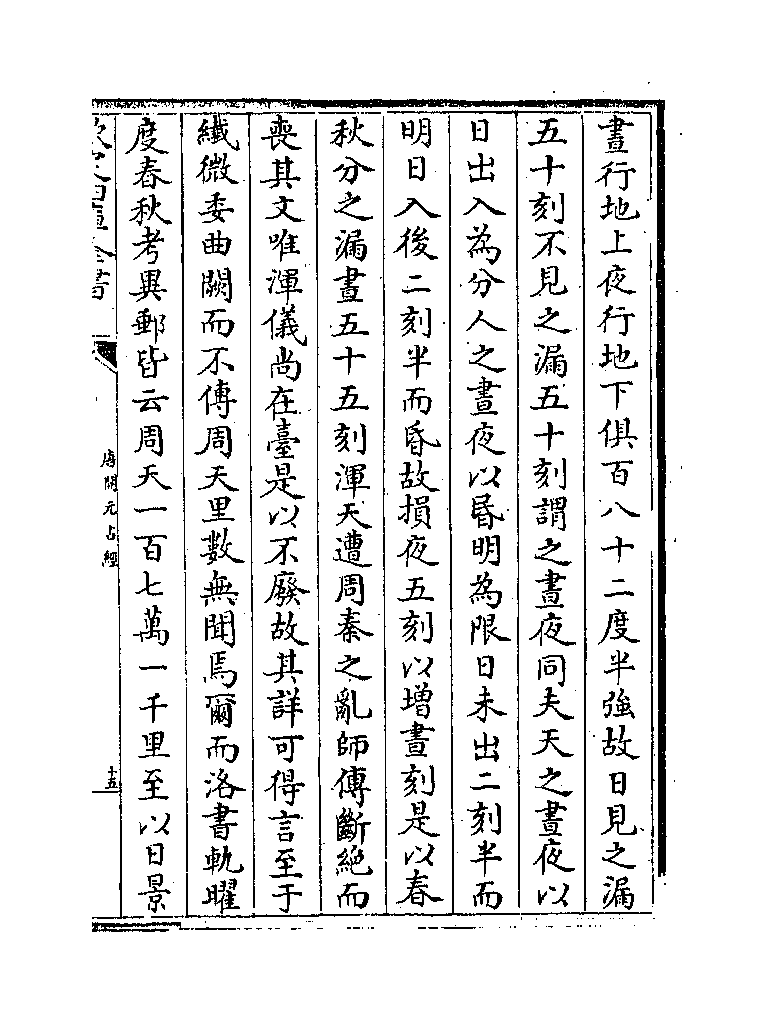 晝行地上夜行地下俱百八十二度半強故日見之漏
五十刻不見之漏五十刻謂之晝夜同夫天之晝夜以
日出入為分人之晝夜以昏明為限日未出二刻半而
明日入後二刻半而昏故損夜五刻以增晝刻是以春
秋分之漏晝五十五刻渾天遭周秦之亂師傳斷絶而
喪其文唯渾儀尚在臺是以不廢故其詳可得言至于
纎微委曲闕而不傳周天里數無聞焉爾而洛書軌曜
度春秋考異郵皆云周天一百七萬一千里至以日景
全書
唐開元占經
十五